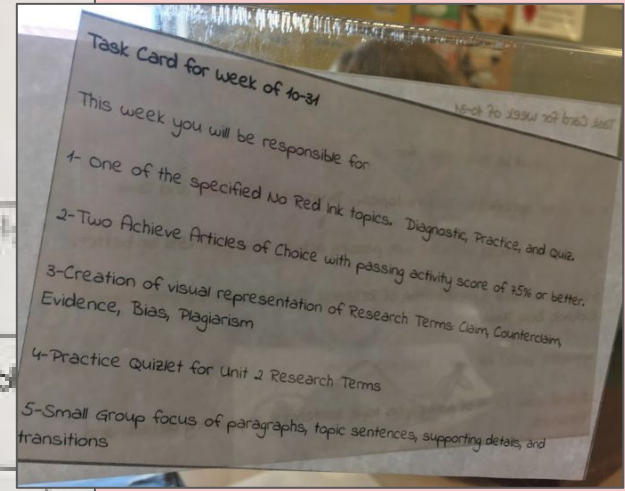 Task Card for week of 10-31
This week you will be responsible for
1- One of the specified No Red Ink topics. Diagnostic, Practice, and Quiz.
2-Two Achieve Articles of Choice with passing activity score of 75% or better.
3-Creation of visual representation of Research Terms Claim, Counterclaim,
Evidence, Bias, Plagiarism
4-Practice Quizlet for Unit 2 Research Terms
5-Small Group focus of paragraphs, topic sentences, supporting details, and
transitions